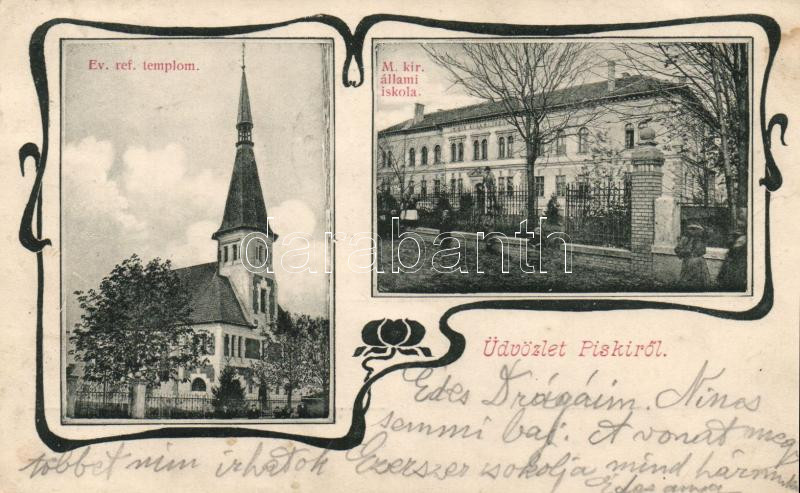 Ev. ref. templom.
M. kir.
állami
iskola.
darabanth
Üdvözlet Piskiről.
Édes Drágáim. Nincs
semmi baj. A vonat megy
többet nem írhatok Ezerszer csókolja mind hármukat
Édes anya